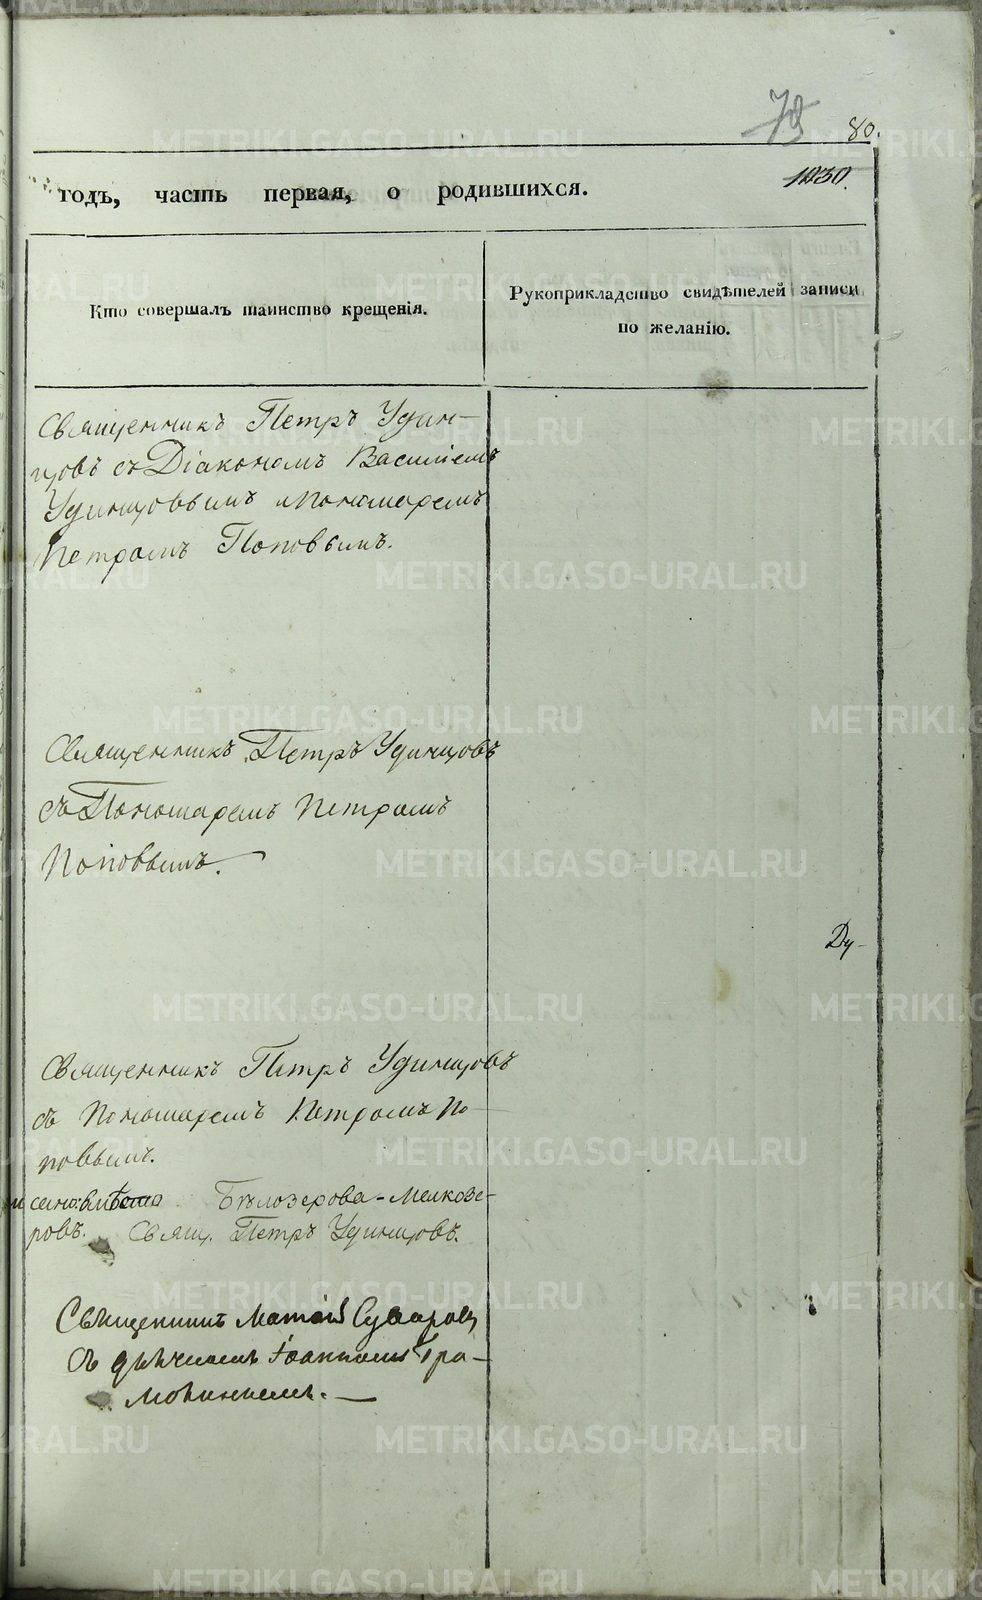 79
80.
годъ, часть первая, о родившихся.
1830.
Кто совершалъ таинство крещенія.
Рукоприкладство свидѣтелей записи
по желанію.
Священникъ Петръ Удин-
цовъ съ Діакономъ Василіемъ
Удинцовымъ и Пономаремъ
Петромъ Поповымъ.
Священникъ Петръ Удинцовъ
съ Пономаремъ Петромъ
Поповымъ.
Ду-
Священникъ Петръ Удинцовъ
съ Пономаремъ Петромъ По-
повымъ.
Бѣлозерова - Мелкозе-
ровъ. Свящ. Петръ Удинцовъ.
Священникъ Матѳій Суваровъ
съ дьячкомъ Іоанномъ Гра-
METRIKI.GASO-URAL.RU